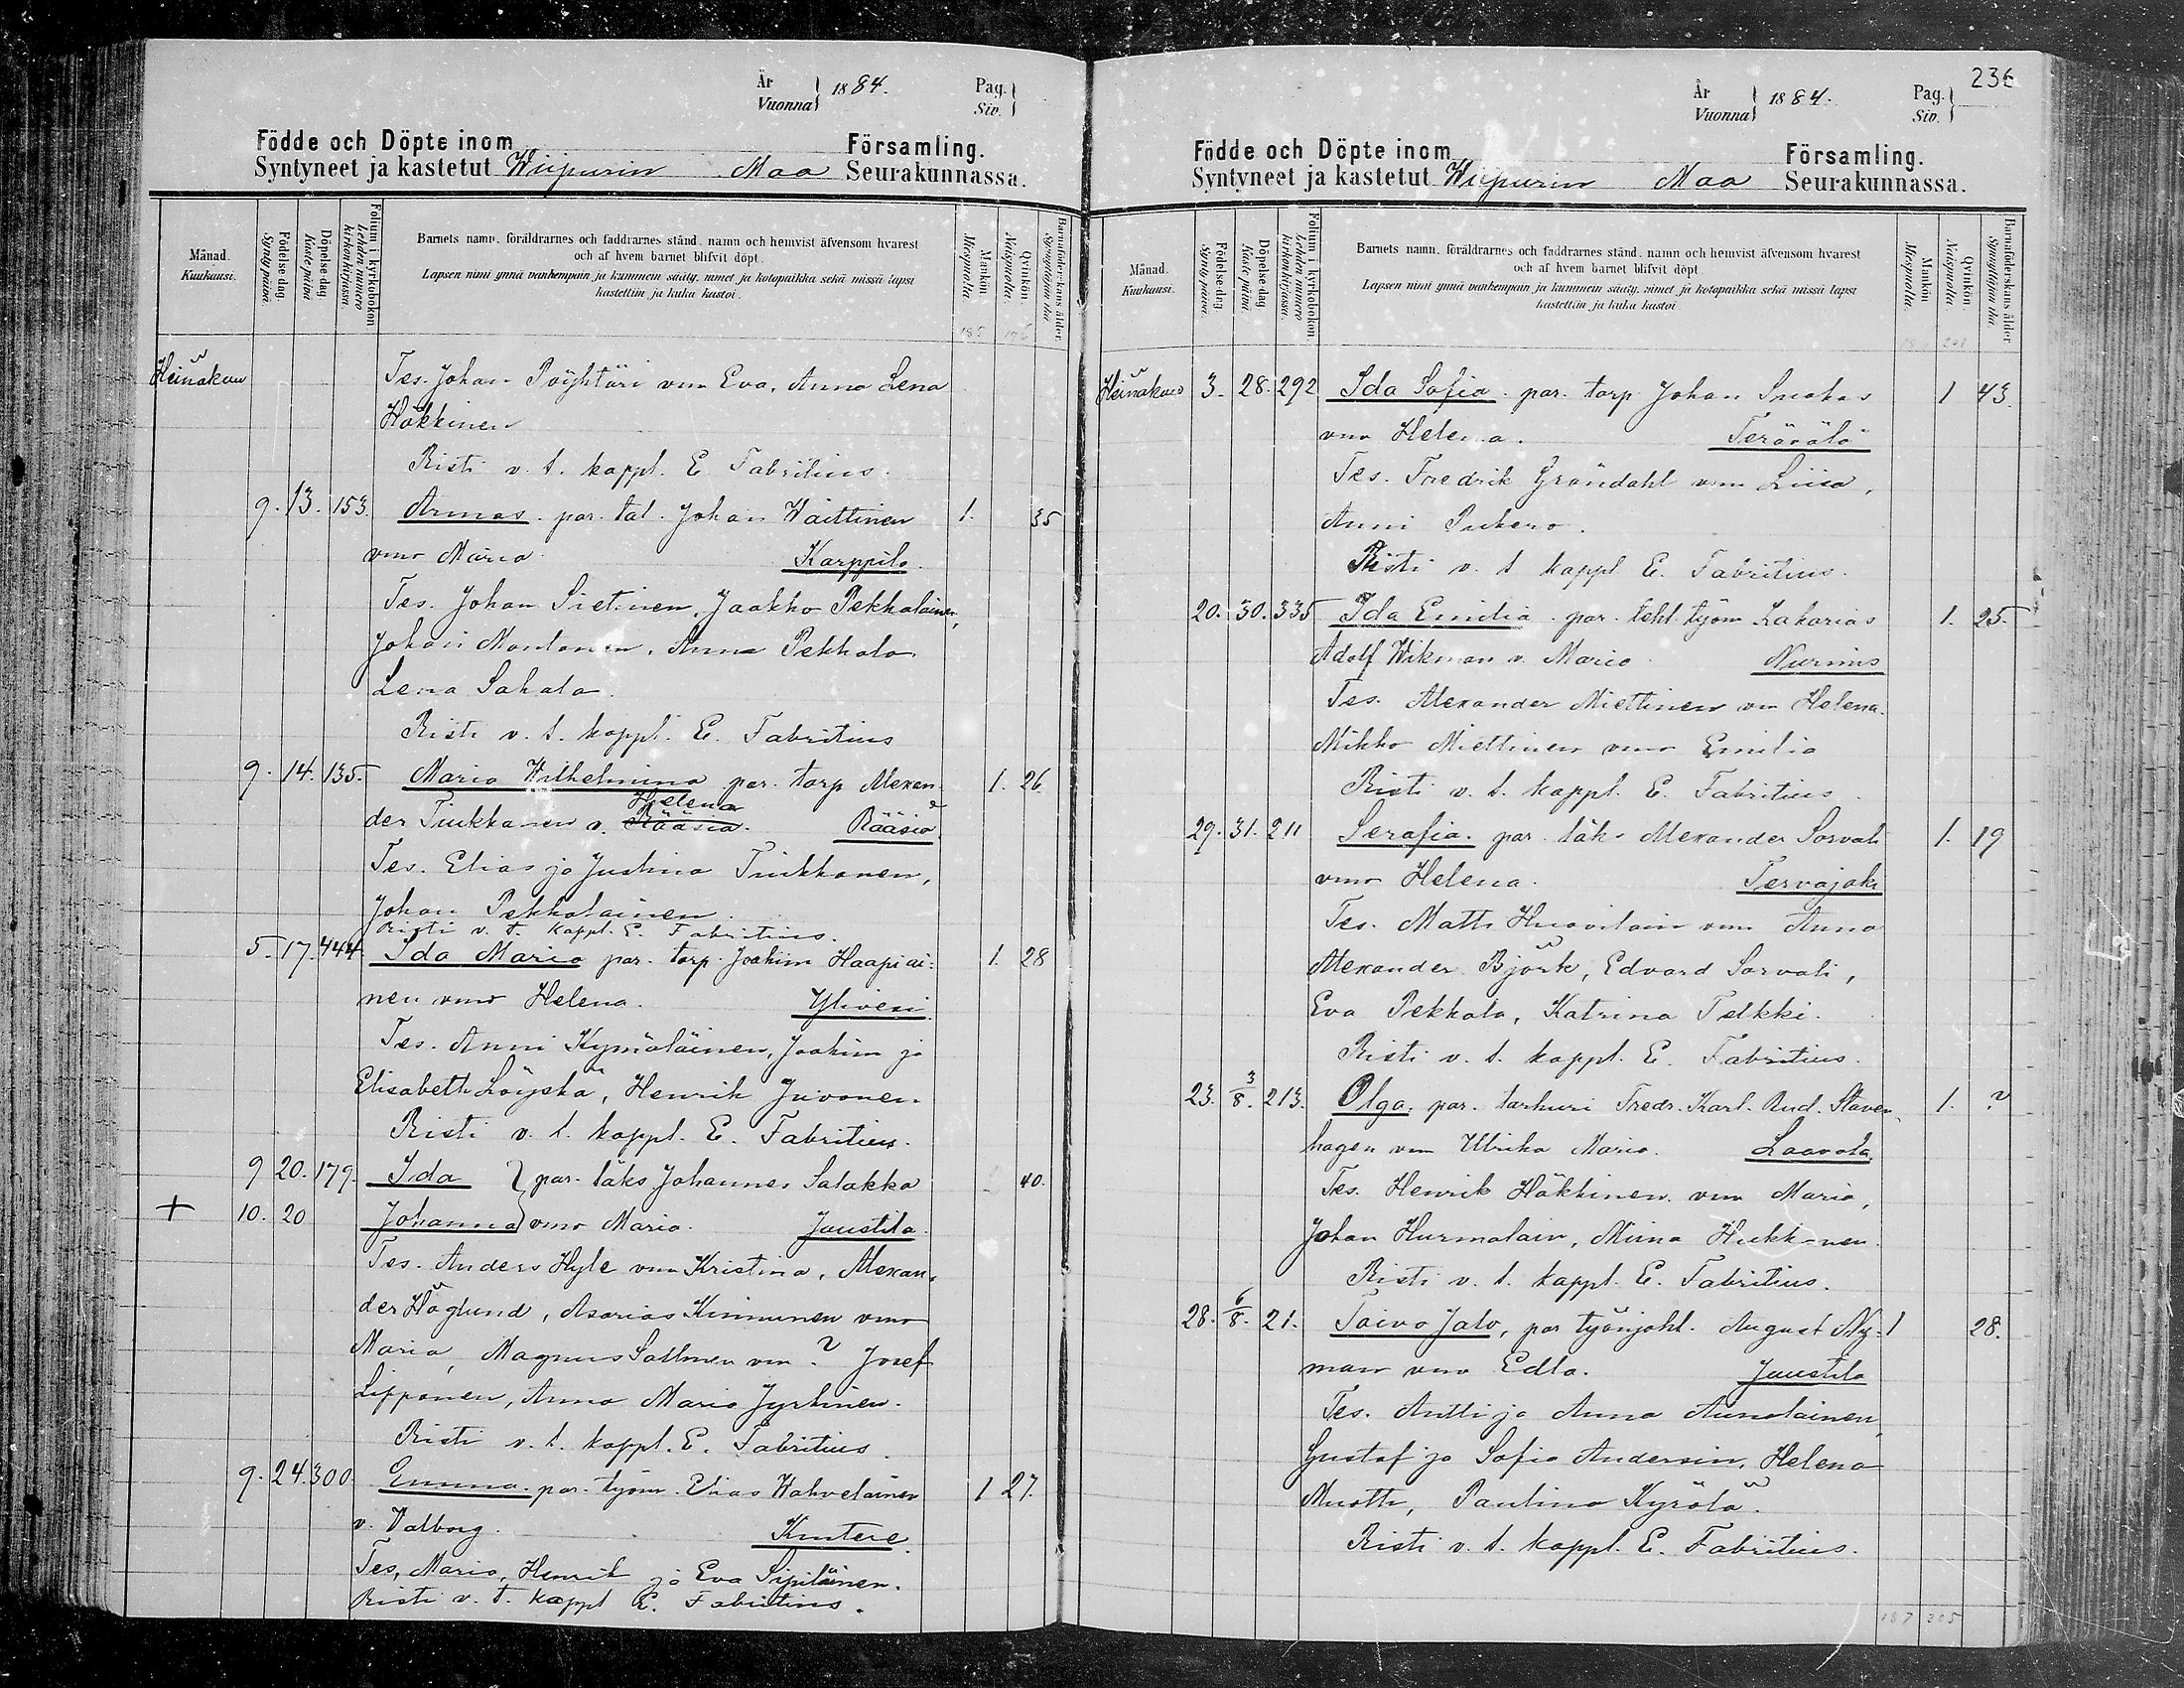 År
Vuonna } 1884.
Pag.
Siv.
Födde och Döpte inom Församling.
Syntyneet ja kastetut Wiipurin Maa Seurakunnassa.
Månad.
Kuukausi.
Födelse-dag.
Syntypäivä.
Döpelse-dag
Kastepäivä
Folium i kyrkoboken
Lehden numero kirkonkirjassa.
Barnets namn, föräldrarnes och faddrarnes stånd, namn och hemvist äfvensom hvarest
och af hvem barnet blifvit döpt.
Lapsen nimi ynnä vanhempain ja kummein sääty, nimet ja kotopaikka sekä missä lapsi
kastettiin ja kuka kastoi.
Mankön
Miespuolia.
Qvinkön.
Naispuolia.
Barnaföderskans ålder.
Synnyttäjän ikä
185 196
Heinäkuu Tes. Johan Pöyhtäri vmo Eva, Anna Lena
Häkkinen
Risti v. t. kappl. E. Fabritius.
9. 13. 153. Armas. par. tal. Johan Waittinen 1. 35
vmo Maria. Karppila.
Tes. Johan Sietinen, Jaakko Pekkalainen,
Johan Montonen, Anna Pekkala
Lena Sahala.
Risti v. t. kappl. E. Fabritius
9. 14. 135. Maria Wilhelmina par. torp Alexan- 1. 26.
Helena
der Tiukkanen v. Rääsiä. Rääsiä.
Tes. Elias ja Justina Tiukkanen,
Johan Pekkalainen.
Risti v. t. kappl. E. Fabritius.
5. 17. 444. Ida Maria par. torp. Joakim Haapiai- 1. 28
nen vmo Helena. Ylivesi.
Tes. Anni Kymäläinen, Joakim ja
Elisabeth Löyskä, Henrik Juvonen.
Risti v. t. kappl. E. Fabritius.
9 20. 179. Ida } par. läks Johannes Salakka 40.
+ 10. 20 Johanna } vmo Maria. Juustila.
Tes. Anders Hyle vmo Kristina, Alexan-
der Höglund, Asarias Kinnunen vmo
Maria, Magnus Sallmen vm ? Josef
Lipponen, Anna Maria Jyrkinen.
Risti v. t. kappl. E. Fabritius.
9. 24. 300. Emma. par. työm. Elias Wahvelainen 1 27.
v. Valborg. Kintere.
Tes, Maria, Henrik ja Eva Sipiläinen.
Risti v. t. kappl E. Fabritius.
236
År
Vuonna } 1884.
Pag.
Siv.
Födde och Döpte inom Församling.
Syntyneet ja kastetut Wiipurin Maa Seurakunnassa.
Månad.
Kuukausi.
Födelse-dag
Syntypäivä.
Döpelse-dag
Kastepäivä.
Folium i kyrkoboken
Lehden numero kirkonkirjassa.
Barnets namn, föräldrarnes och faddrarnes stånd, namn och hemvist äfvensom hvarest
och af hvem barnet blifvit döpt
Lapsen nimi ynnä vanhempain ja kummein sääty, nimet ja kotopaikka sekä missä lapsi
kastettiin ja kuka kastoi
Mankön
Miespuolia.
Qvinkön.
Naispuolia.
Barnaföderskans ålder
Synnyttäjän ikä.
Heinäkuu 3. 28. 292 Ida Sofia. par. torp. Johan Suokas 1 43.
vmo Helena. Terävälä
Tes. Fredrik Gröndahl vmo Liisa,
Anni Pukero.
Risti v. t kappl E. Fabritius.
20. 30. 335 Ida Emilia par. teht. työm Zakarias 1. 25.
Adolf Wikman v. Maria. Nurmis
Tes. Alexander Miettinen vm Helena.
Mikko Miettinen vmo Emilia
Risti v. t. kappl. E. Fabritius.
29. 31. 211 Serafia. par. läks Alexander Sorvali 1. 19
vmo Helena. Tervajoki
Tes. Matti Huovilain vmo Anna
Alexander Björk, Edvard Sorvali,
Eva Pekkala, Katrina Telkki.
Risti v. t. kappl. E. Fabritius.
23. 3/8. 213. Olga. par. karkuri Fredr. Karl. Rud. Staven- 1. ?
hagen vm Ulrika Maria. Laavola.
Tes. Henrik Häkkinen vmo Maria,
Johan Hurmalain, Miina Hukkanen.
Risti v. t. kappl. E. Fabritius.
28. 6/8. 21. Toivo Jalo, par työnjoht. August Ny- 1 28.
man vmo Edla. Juustila
Tes. Antti ja Anna Aunolainen,
Gustaf ja Sofia Andersin, Helena
Muotti, Paulina Kyrölä.
Risti v. t. kappl. E. Fabritius.
187 205